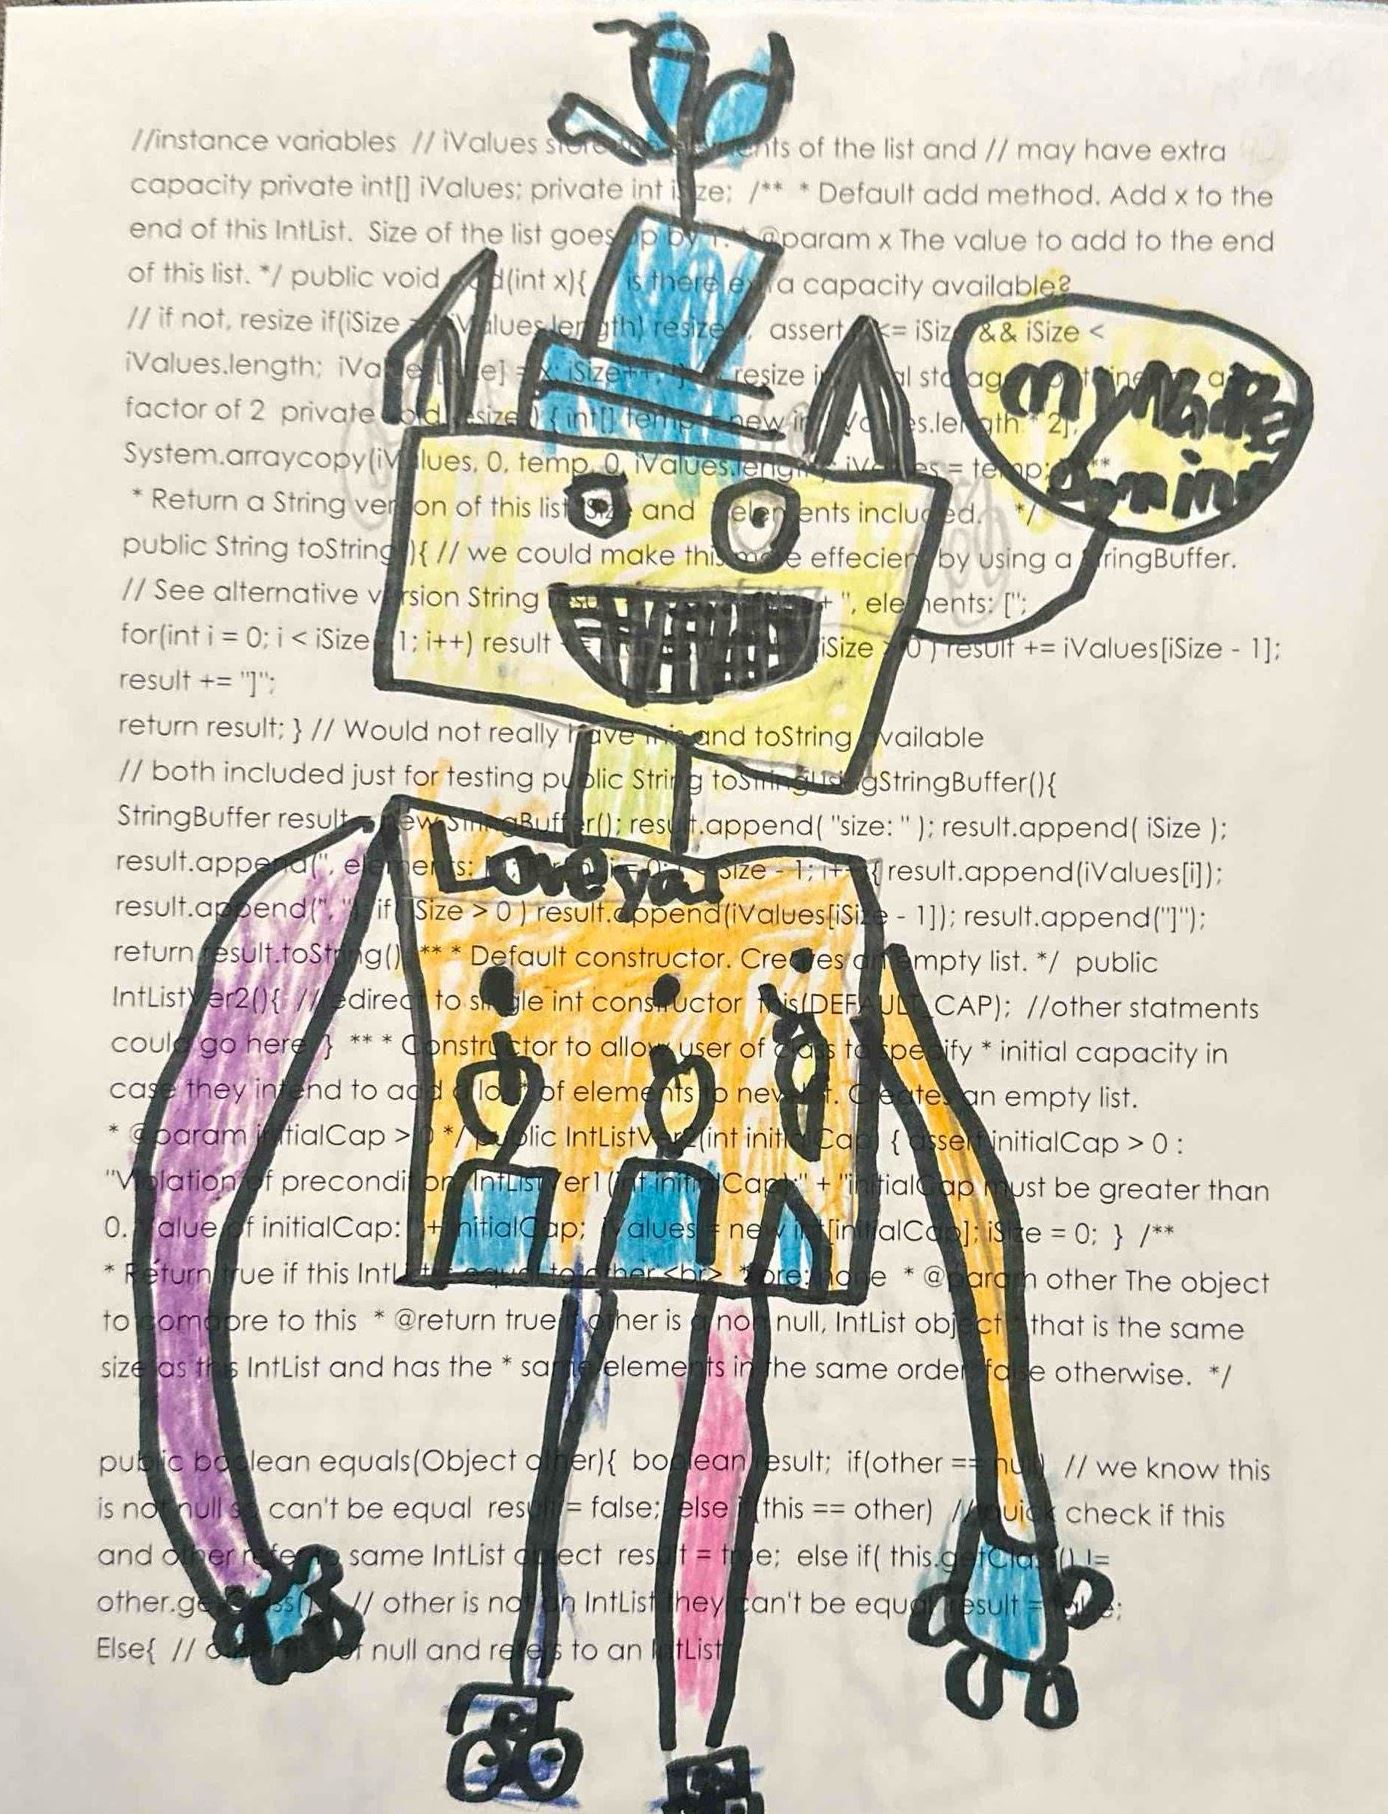 //instance variables // iValues of the list and // may have extra
capacity private int[] iValues; private int iSize; /** * Default add method. Add x to the
end of this IntList. Size of the list goes up by @param x The value to add to the end
of this list. */ public void add(int x){ is there extra capacity available?
// if not, resize if(iSize iValues.length) resize assert <= iSize && iSize <
iValues.length; iSize++; resize
factor of 2 private resize { int[] temp = new * 2];
System.arraycopy(iValues, 0, temp, 0, iValues.length iValues = temp;
My Name
* Return a String version of this list and elements included. */
public String toString(){ // we could make this more effecient by using a StringBuffer.
// See alternative version String + ", elements: [";
for(int i = 0; i < iSize 1; i++) result iSize > 0 ) result += iValues[iSize - 1];
result += "]";
return result; } // Would not really have this and toString available
// both included just for testing public String toStringUsingStringBuffer(){
StringBuffer result new StringBuffer(); result.append( "size: " ); result.append( iSize );
Love ya!
result.append(", elements: iSize - 1; i++ { result.append(iValues[i]);
result.append(", if( iSize > 0 ) result.append(iValues[iSize - 1]); result.append("]");
return result.toString() ** * Default constructor. Creates an empty list. */ public
IntListVer2(){ //redirect to single int constructor this(DEFAULT_CAP); //other statments
could go here } ** * Constructor to allow user of class to specify * initial capacity in
case they intend to add a lot of elements to new Creates an empty list.
* @param initialCap > 0 */ public IntListVer2(int initialCap) { assert initialCap > 0 :
"Violation of precondition IntListVer1(int initialCap):" + "initialCap must be greater than
0. Value of initialCap: + initialCap; iValues = new int[initialCap]; iSize = 0; } /**
* Return true if this IntList equal to other.<br> *pre: none * @param other The object
to compare to this * @return true other is a non null, IntList object that is the same
size as this IntList and has the * same elements in the same order false otherwise. */
public boolean equals(Object other){ boolean result; if(other == null) // we know this
is not null so can't be equal result = false; else if(this == other) // quick check if this
and other refer to same IntList object result = true; else if( this.getClass() !=
other.getClass() // other is not an IntList they can't be equal result = false;
Else{ // null and refers to an IntList